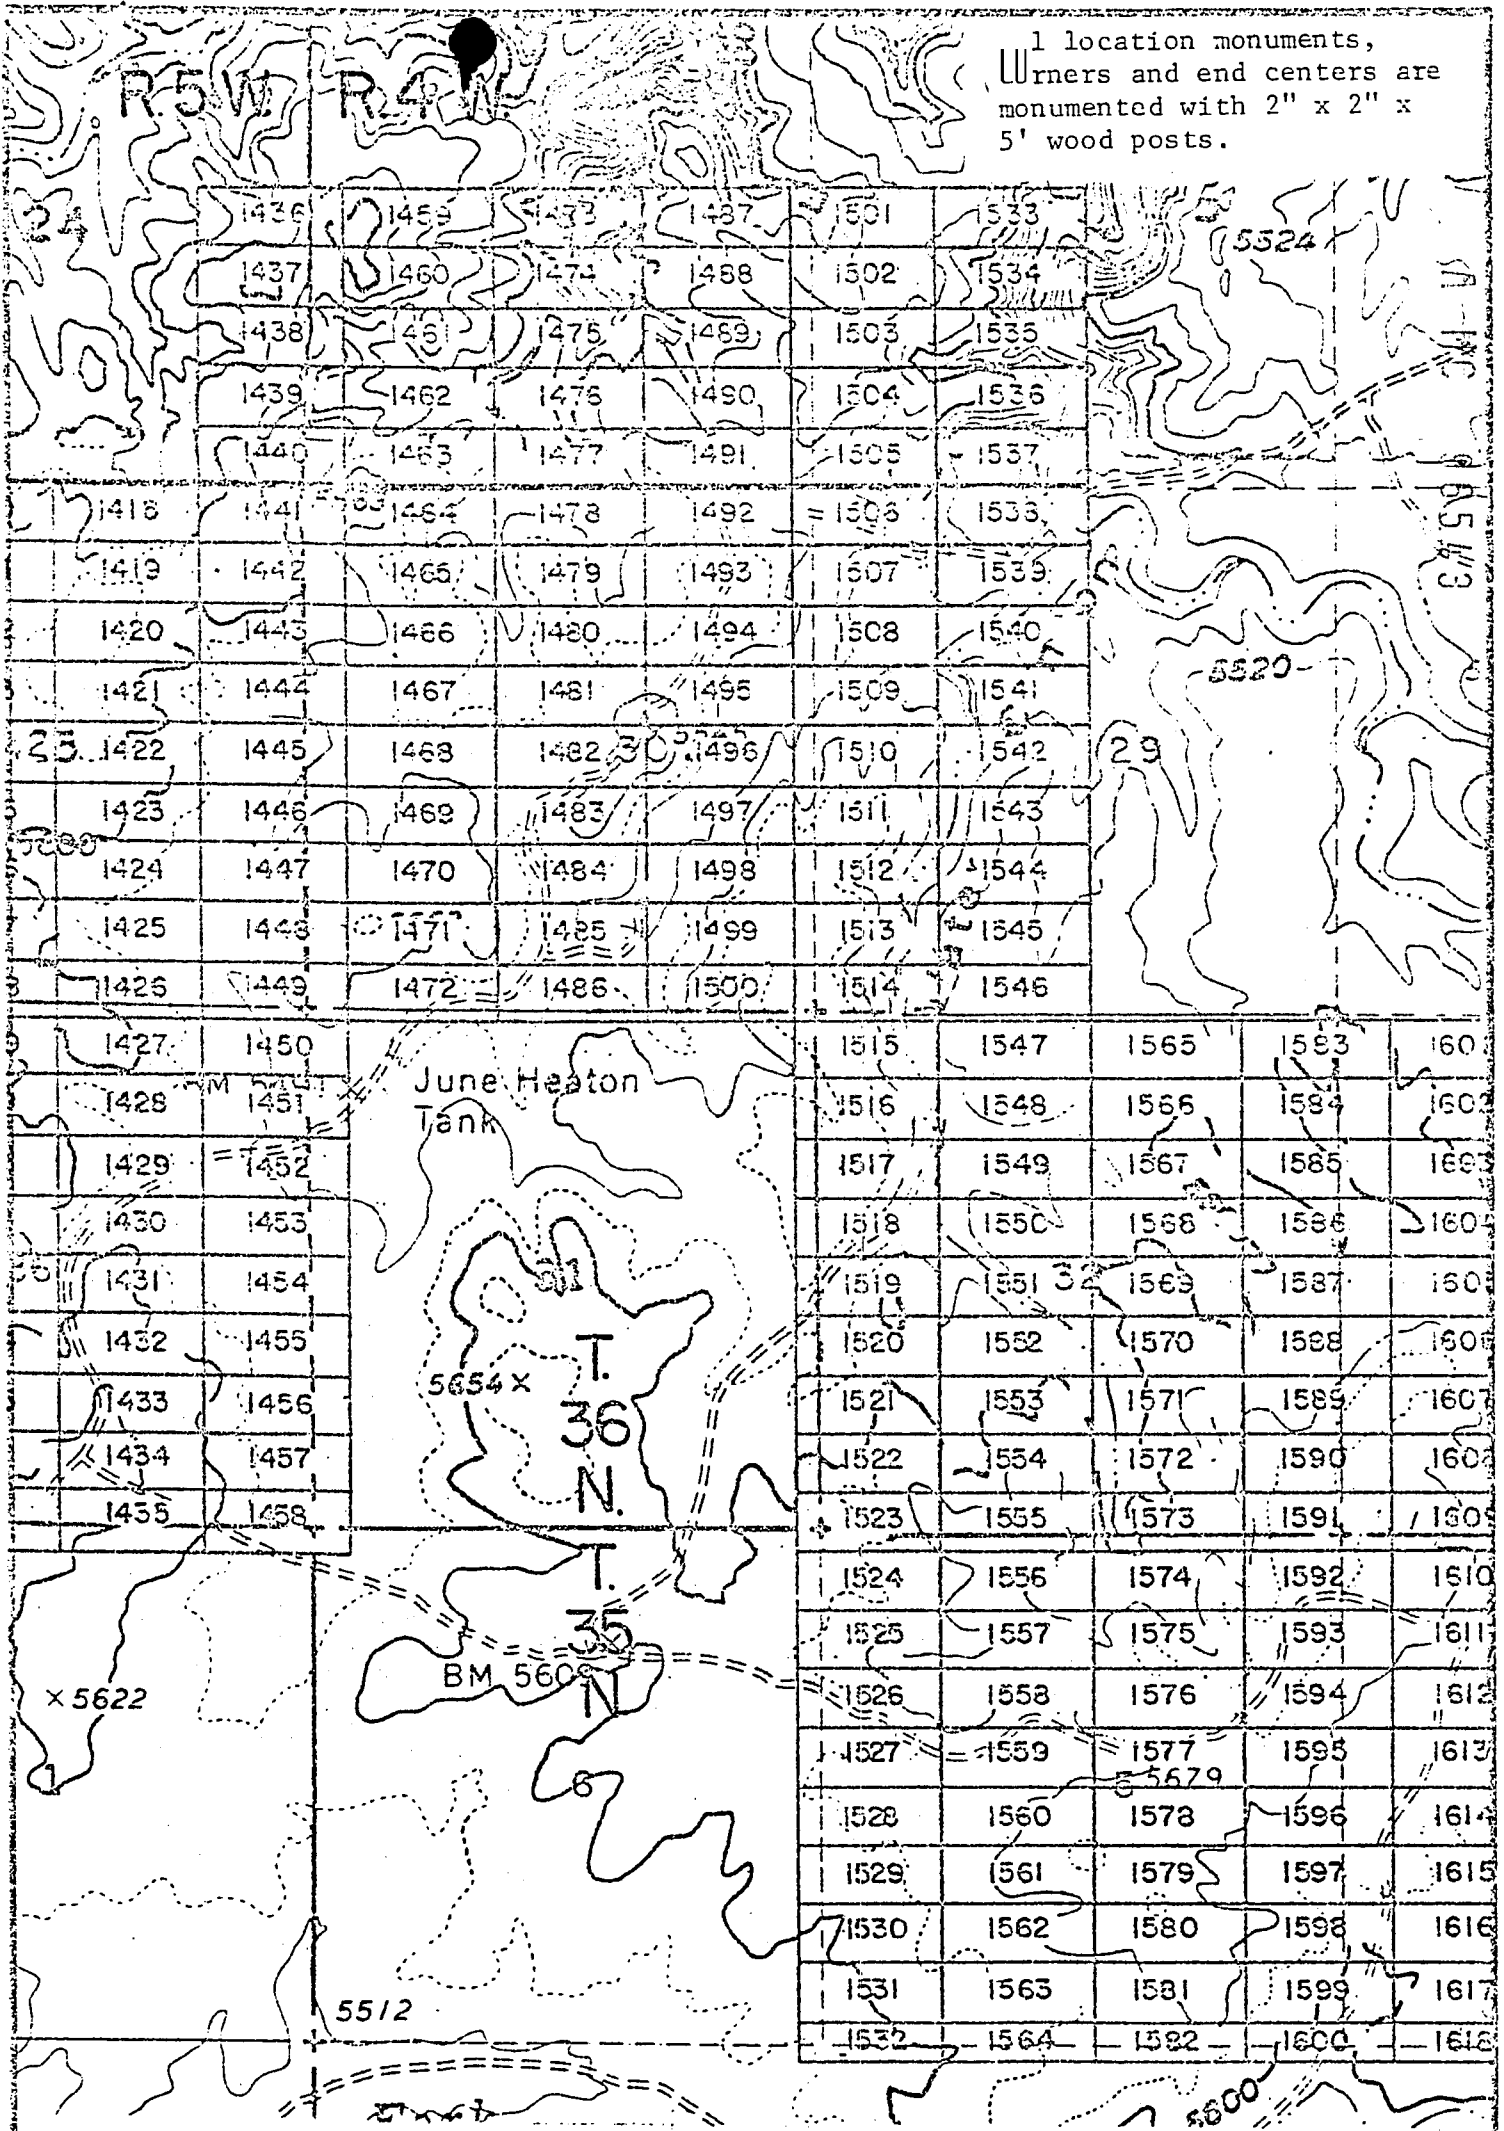 1 location monuments,
rners and end centers are
monumented with 2" x 2" x
5' wood posts.
R.5W. R.4W.
24 1436 1459 1473 1487 1501 1533
5524
1437 1460 1474 1488 1502 1534
1438 1461 1475 1489 1503 1535
1439 1462 1476 1490 1504 1536
1440 1463 1477 1491 1505 1537
1418 1441 1464 1478 1492 1506 1538
1419 1442 1465 1479 1493 1507 1539
1420 1443 1466 1480 1494 1508 1540
1421 1444 1467 1481 1495 1509 1541
5520
25 1422 1445 1468 1482 30 1496 1510 1542 29
1423 1446 1469 1483 1497 1511 1543
1424 1447 1470 1484 1498 1512 1544
1425 1448 1471 1485 1499 1513 1545
1426 1449 1472 1486 1500 1514 1546
1427 1450 1515 1547 1565 1583 160
June Heaton
Tank
BM
1428 1451 1516 1548 1566 1584 1602
1429 1452 1517 1549 1567 1585 1603
1430 1453 1518 1550 1568 1586 160
1431 1454 31 1519 1551 32 1569 1587 160
1432 1455 1520 1552 1570 1588 160
T.
36
N.
5654 ×
1433 1456 1521 1553 1571 1589 1607
1434 1457 1522 1554 1572 1590 160
1435 1458 1523 1555 1573 1591 1609
T.
35
N
1524 1556 1574 1592 1610
1525 1557 1575 1593 1611
BM 5609
× 5622
1526 1558 1576 1594 1612
1527 1559 1577 1595 1613
1 6 5 5679
1528 1560 1578 1596 1614
1529 1561 1579 1597 1615
1530 1562 1580 1598 1616
1531 1563 1581 1599 1617
5512
1532 1564 1582 1600 1618
5600